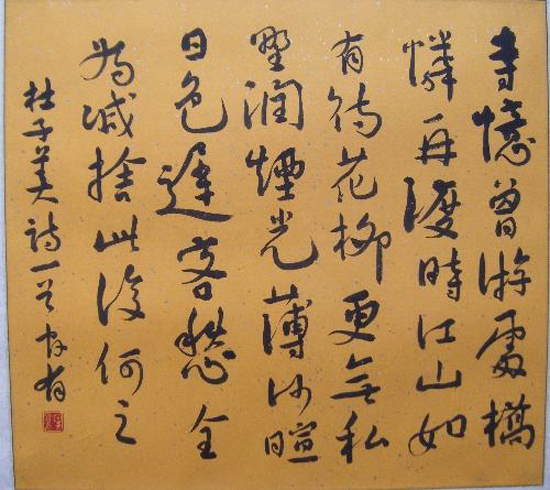 寺憶曾游處橋
憐再渡時江山如
有待花柳更無私
野潤煙光薄沙暄
日色遲客愁全
為減捨此復何之
杜子美詩一首